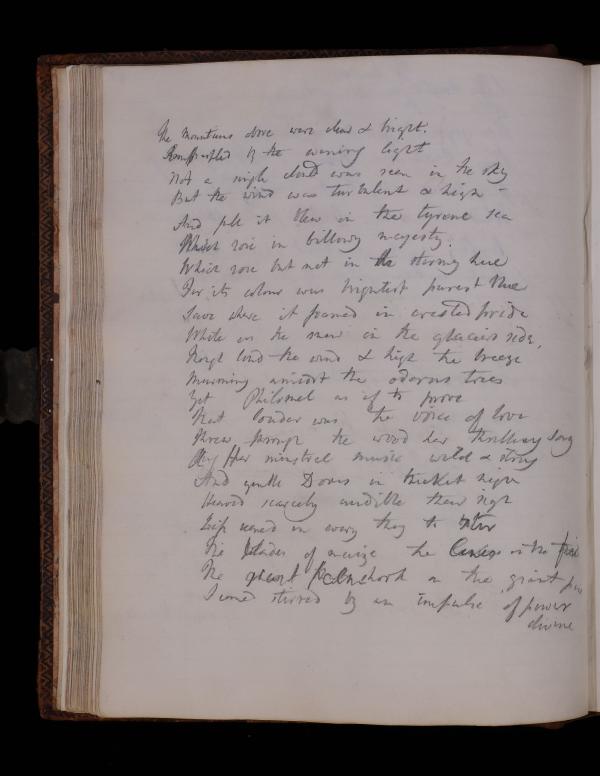 The mountains above were clear & bright.
by the evening light
Not a single cloud was seen in the sky
But the wind was turbulent & high –
And full it blew in the tyrene sea
Which rose in billowy majesty.
Which rose but not in the stormy hue
For its colour was brightest purest blue
Save where it foamed in crested pride
White as the snow in the glaciers side,
Though loud the wind & high the breeze
Murmuring amidst the odorous trees
Yet Philomel as if to prove
That louder was the voice of love
Threw through the wood her thrilling song
Her minstrel music wild & strong
And gentle Doves in thicket nigh
Heaved scarcely audible their sigh
Life seemed in every thing to
The blades of maize the
The on the giant
Seemed stirred by an impulse of power
divine